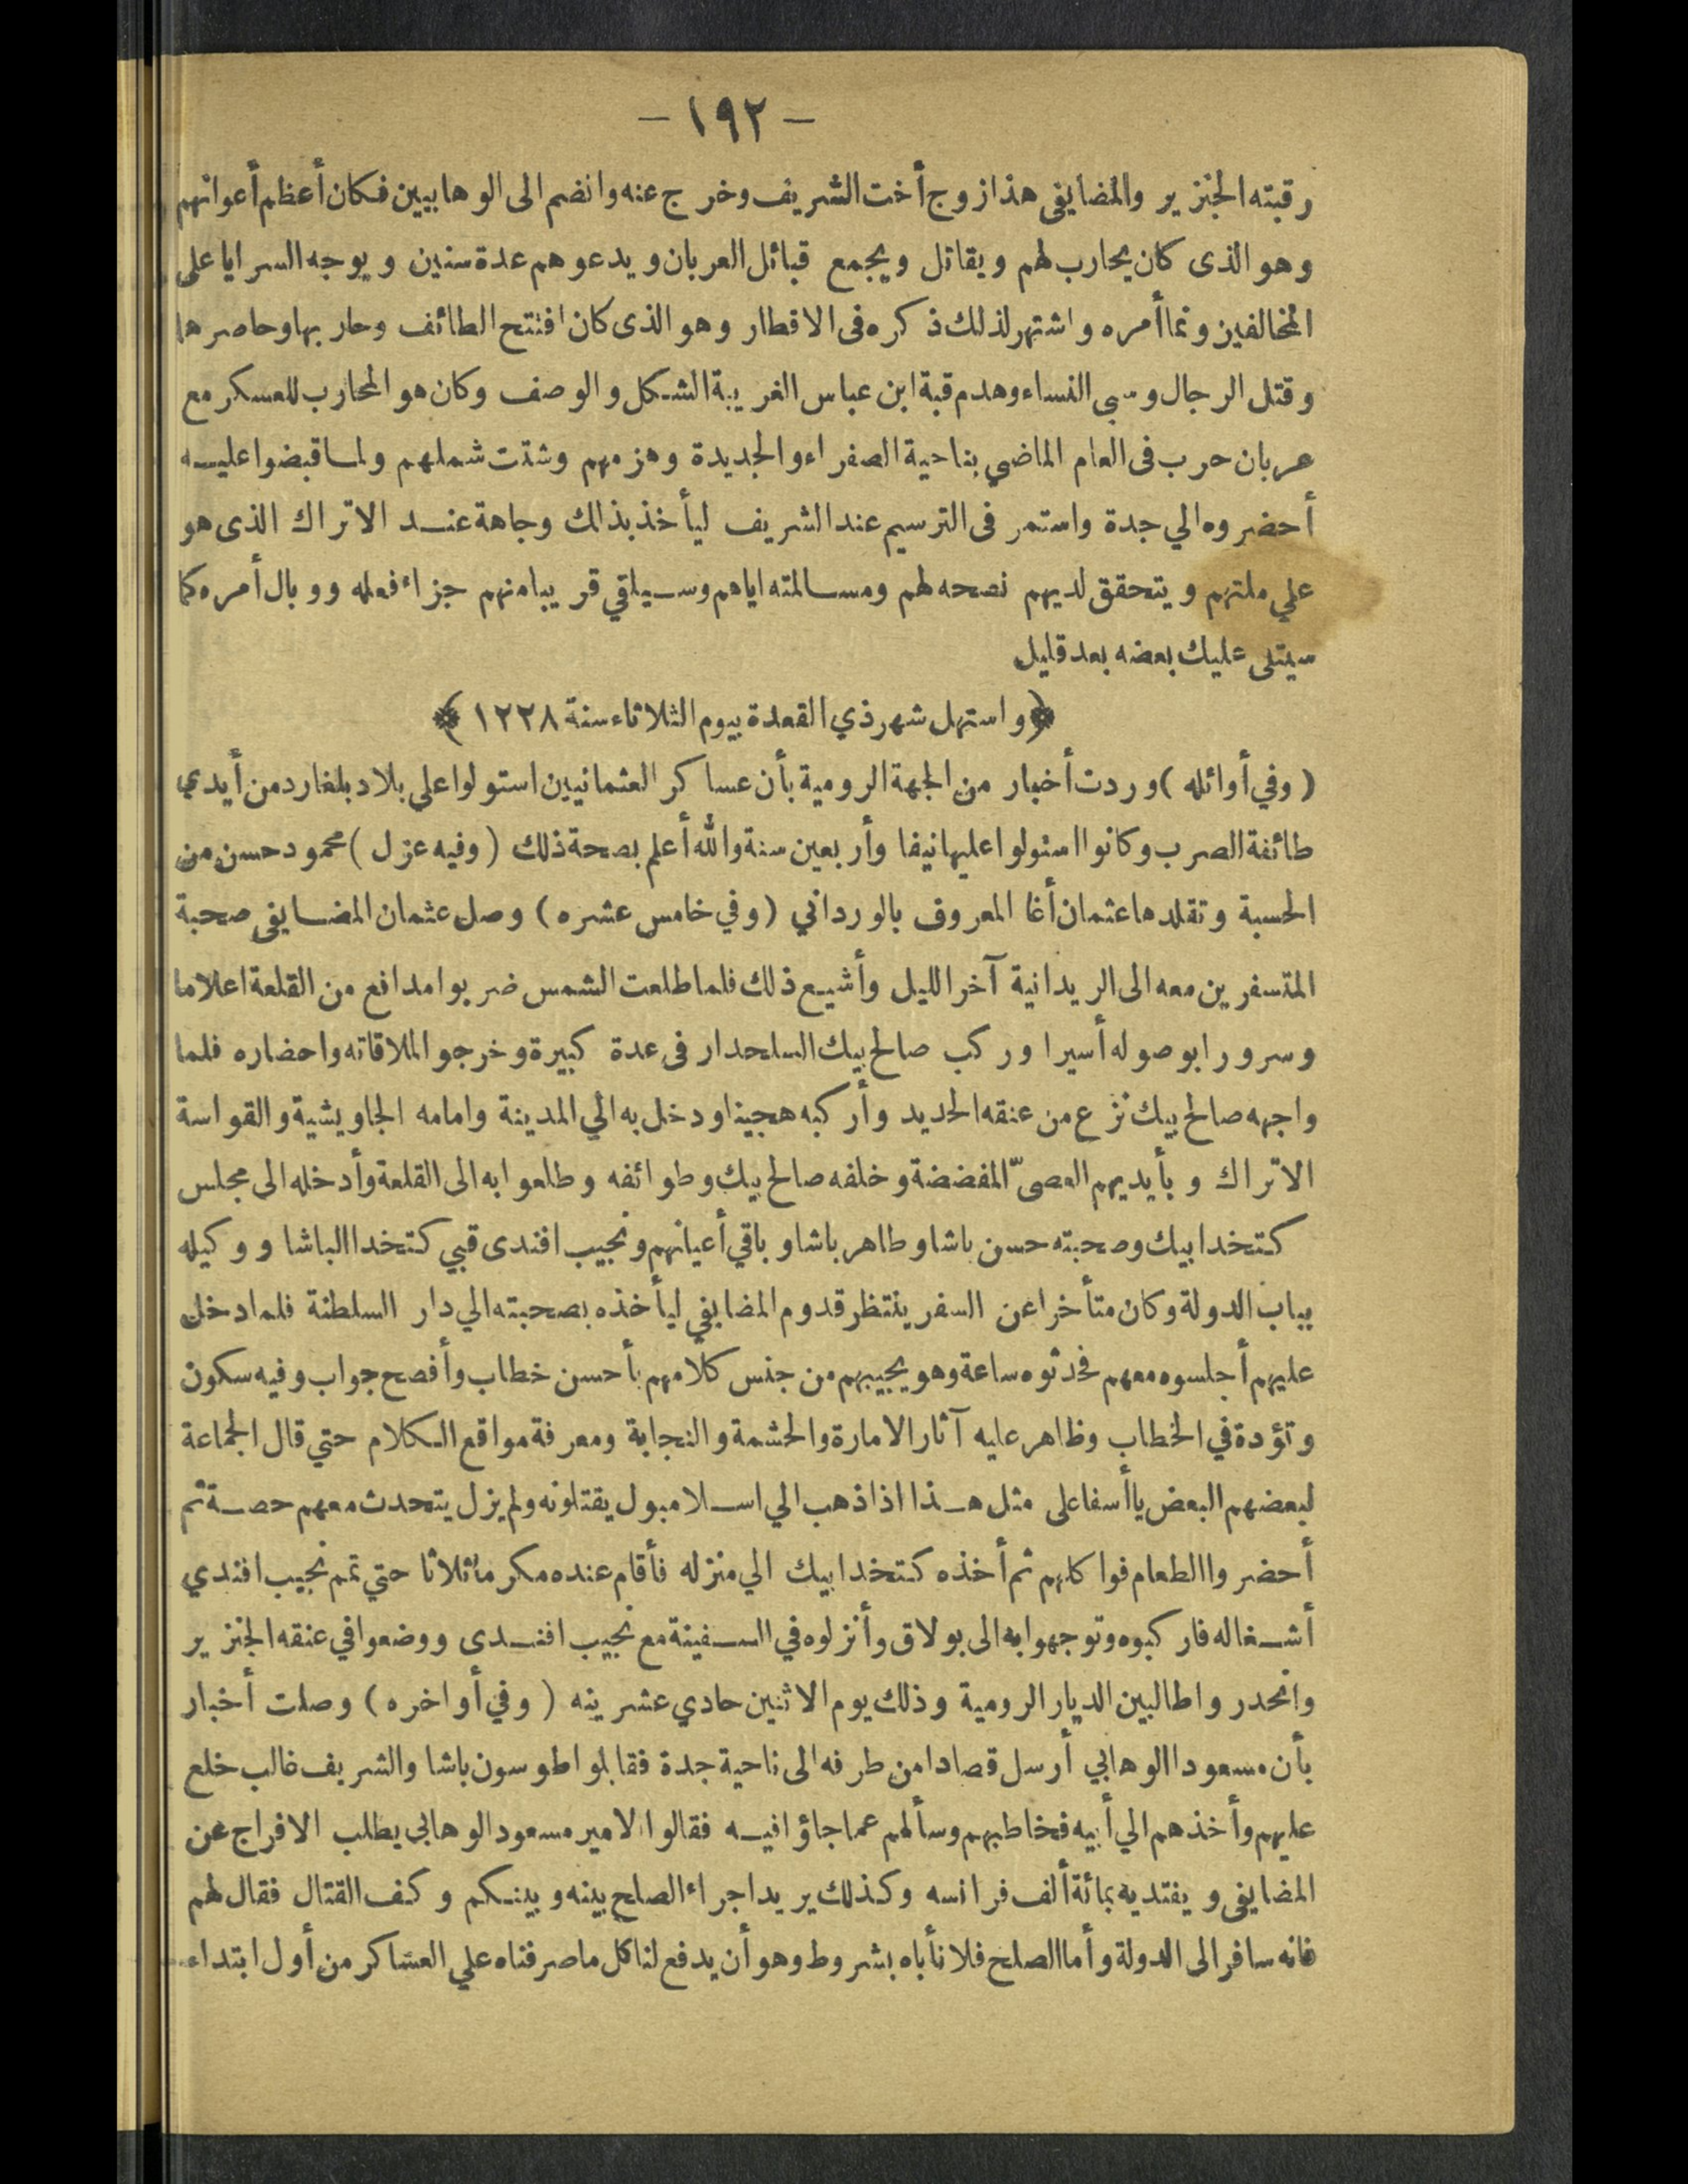 - ١٩٢ -
رقبته الجنزير والمضايفى هذا زوج أخت الشريف وخرج عنه وانضم الى الوهابيين فكان أعظم أعوانهم
وهو الذى كان يحارب لهم ويقاتل ويجمع قبائل العربان ويدعوهم عدة سنين ويوجه السرايا على
المخالفين ونما أمره واشتهر لذلك ذكره فى الاقطار وهو الذى كان افتتح الطائف وحاربها وحاصرها
وقتل الرجال وسبى النساء وهدم قبة ابن عباس الغريبة الشكل والوصف وكان هو المحارب للعسكر مع
عربان حرب فى العام الماضي بناحية الصفراء والجديدة وهزمهم وشتت شملهم ولما قبضوا عليه
أحضروه الي جدة واستمر فى الترسيم عند الشريف ليأخذ بذلك وجاهة عند الاتراك الذى هو
علي ملتهم ويتحقق لديهم نصحه لهم ومسالمته اياهم وسيلقي قريبا منهم جزاء فعله ووبال أمره كما
سيتلى عليك بعضه بعد قليل
﴿ واستهل شهر ذي القعدة بيوم الثلاثاء سنة ١٢٢٨ ﴾
(وفي أوائله) وردت أخبار من الجهة الرومية بأن عساكر العثمانيين استولوا علي بلاد بلغارد من أيدي
طائفة الصرب وكانوا استولوا عليها نيفا وأربعين سنة والله أعلم بصحة ذلك (وفيه عزل) محمود حسن من
الحسبة وتقلدها عثمان أغا المعروف بالورداني (وفي خامس عشره) وصل عثمان المضايفى صحبة
المتسفرين معه الى الريدانية آخر الليل وأشيع ذلك فلما طلعت الشمس ضربوا مدافع من القلعة اعلاما
وسرورا بوصوله أسيرا وركب صالح بيك السلحدار فى عدة كبيرة وخرجوا لملاقاته واحضاره فلما
واجهه صالح بيك نزع من عنقه الحديد وأركبه هجينا ودخل به الي المدينة وامامه الجاويشية والقواسة
الاتراك وبأيديهم العصىّ المفضضة وخلفه صالح بيك وطوائفه وطلعوا به الى القلعة وأدخله الى مجلس
كتخدا بيك وصحبته حسن باشا وطاهر باشا وباقي أعيانهم ونجيب افندى قبي كتخدا الباشا ووكيله
بباب الدولة وكان متأخرا عن السفر ينتظر قدوم المضايفي ليأخذه بصحبته الي دار السلطنة فلما دخل
عليهم أجلسوه معهم فحدثوه ساعة وهو يجيبهم من جنس كلامهم بأحسن خطاب وأفصح جواب وفيه سكون
وتؤدة في الخطاب وظاهر عليه آثار الامارة والحشمة والنجابة ومعرفة مواقع الكلام حتي قال الجماعة
لبعضهم البعض يا أسفا على مثل هذا اذا ذهب الي اسلامبول يقتلونه ولم يزل يتحدث معهم حصة ثم
أحضروا الطعام فواكلهم ثم أخذه كتخدا بيك الي منزله فأقام عنده مكرما ثلاثا حتي تمم نجيب افندي
أشغاله فاركبوه وتوجهوا به الى بولاق وأنزلوه في السفينة مع نجيب افندى ووضعوا في عنقه الجنزير
وانحدروا طالبين الديار الرومية وذلك يوم الاثنين حادي عشرينه (وفي أواخره) وصلت أخبار
بأن مسعودا الوهابي أرسل قصادا من طرفه الى ناحية جدة فقابلوا طوسون باشا والشريف غالب خلع
عليهم وأخذهم الي أبيه فخاطبهم وسألهم عما جاؤا فيه فقالوا الامير مسعود الوهابي يطلب الافراج عن
المضايفى ويفتديه بمائة ألف فرانسه وكذلك يريد اجراء الصلح بينه وبينكم وكف القتال فقال لهم
فانه سافر الى الدولة وأما الصلح فلا نأباه بشروط وهو أن يدفع لنا كل ما صرفناه علي العساكر من أول ابتداء